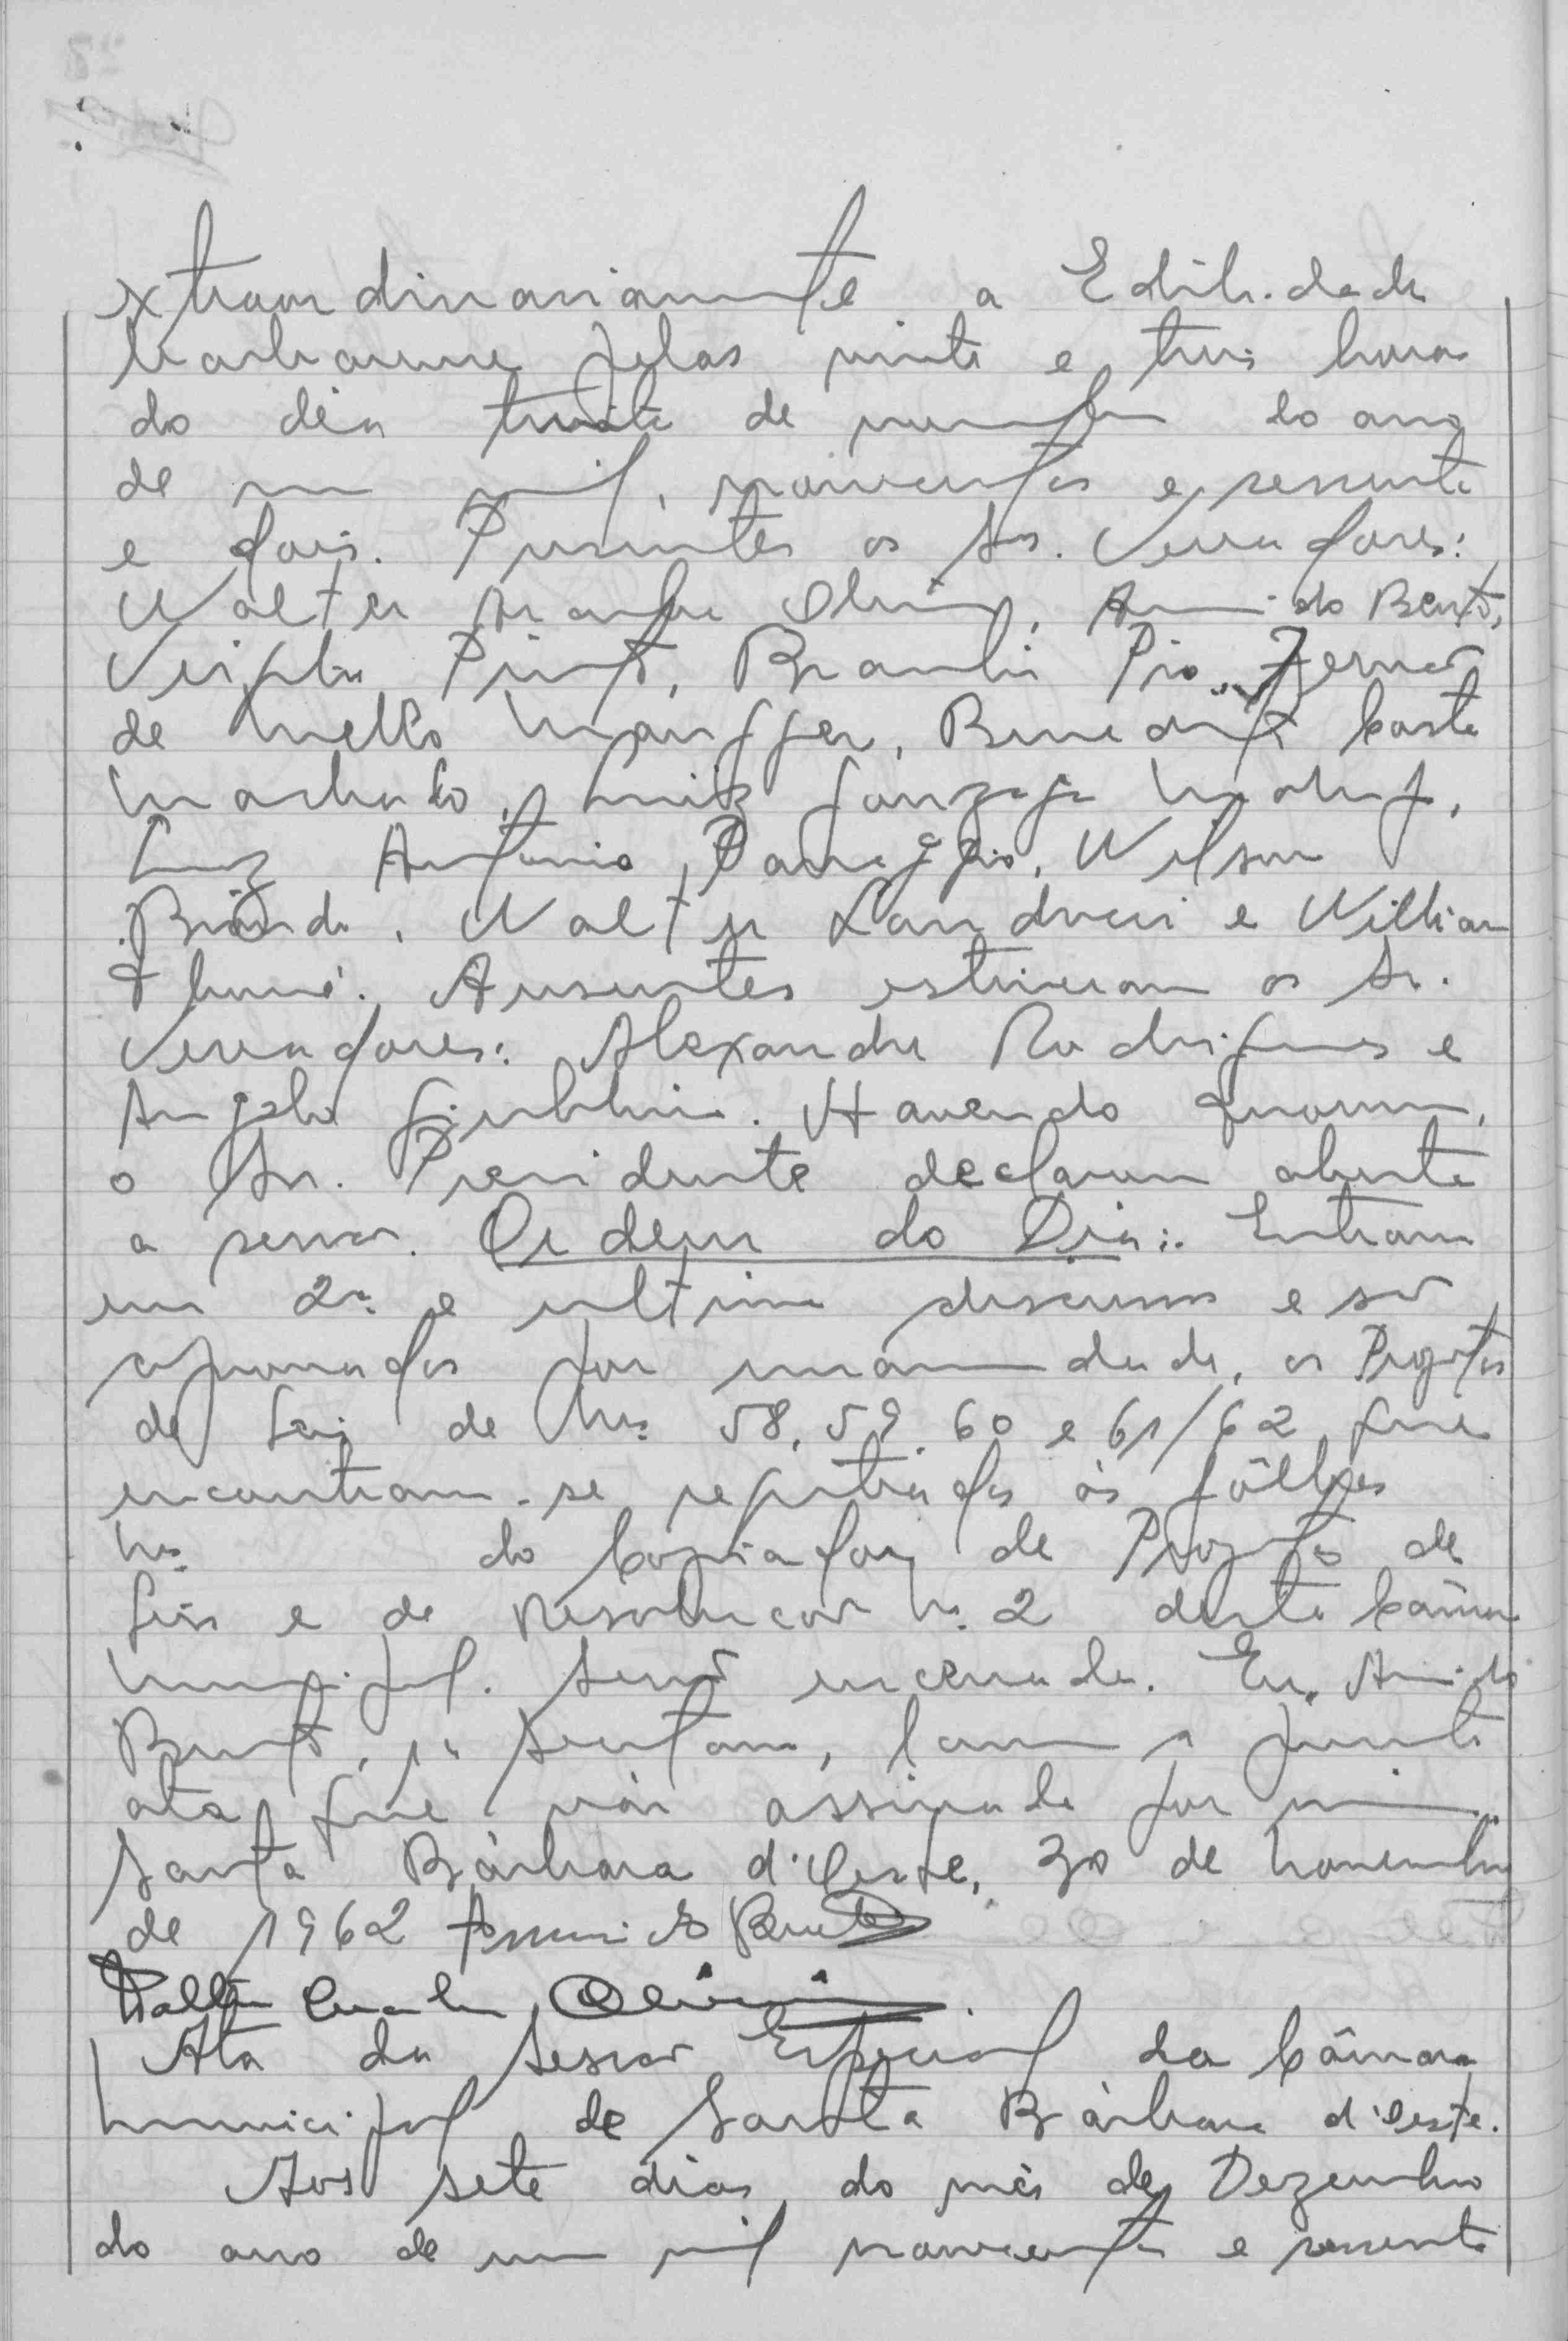 extraordinariamente a Edilidade
barbarense pelas vinte e tres horas
do dia trinta de novembro do ano
de um mil, novecentos e sessenta
e dois. Presentes os Srs. Vereadores:
Walter Aranha Olivi, Arnaldo Bento,
Pinto, Braulio Pio,
de Mello, Benedito Costa
Machado, Luiz Gonzaga
Luiz Antonio Panaggio, Wilson
Walter Landucci e William
Ausentes estiveram os Sr.
Vereadores: Alexandre Rodrigues e
Angelo Giubbina. Havendo quorum,
o Sr. Presidente declarou aberta
a sessão. Ordem do Dia: Entram
em 2ª e ultima discussão e são
aprovados por unanimidade, os Projetos
de Lei de Nrs. 58, 59, 60 e 61/62 que
encontram-se registrados às fôlhas
Nrs. do Copiador de Projetos de
Leis e de Resolucão n. 2 desta Câmara
Municipal. Sessão encerrada. Eu,
Bento, 1º Secretario, lavrei a presente
ata que vai assinada por mim.
Santa Bárbara d'Oeste, 30 de Novembro
de 1962 Bento
Olivi
Ata da Sessão Especial da Câmara
Municipal de Santa Bárbara d'Oeste.
Aos sete dias do mês de Dezembro
do ano de um mil novecentos e sessenta